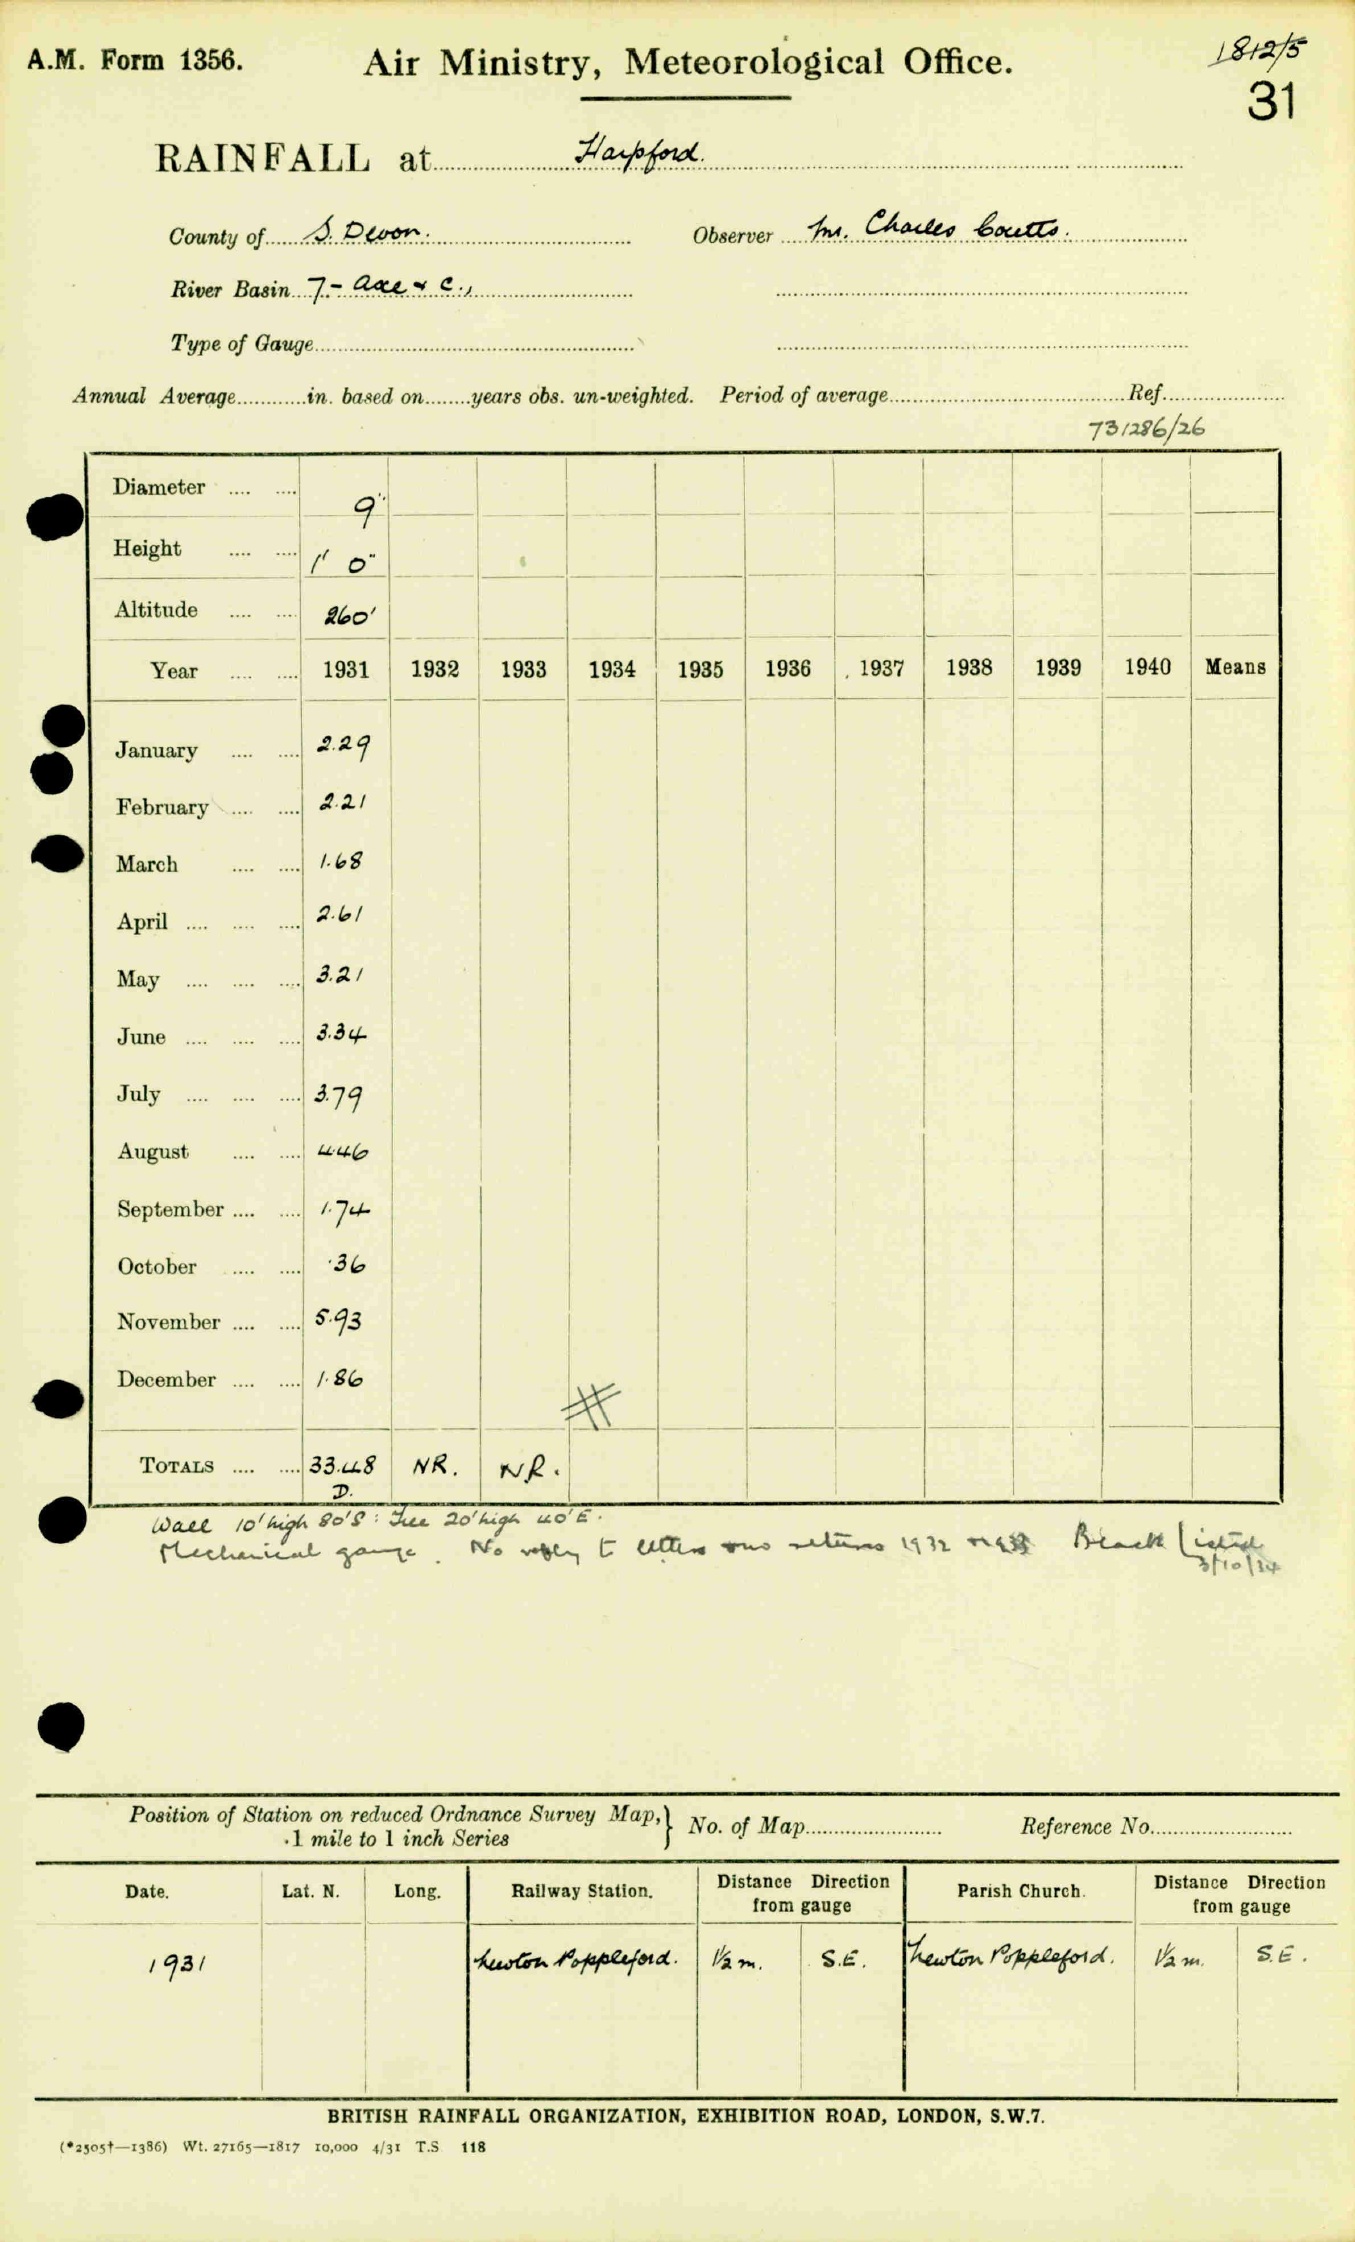 A.M. Form 1356. Air Ministry, Meteorological Office. 1812/5
31
RAINFALL at Harpford.
County of S. Devon. Observer Mr. Charles Coutts.
River Basin 7 - Axe & c.,
Type of Gauge
Annual Average in. based on years obs. un-weighted. Period of average Ref.
731286/26
Diameter 9"
Height 1' 0"
Altitude 260'
Year 1931 1932 1933 1934 1935 1936 1937 1938 1939 1940 Means
January 2.29
February 2.21
March 1.68
April 2.61
May 3.21
June 3.34
July 3.79
August 4.46
September 1.74
October .36
November 5.93
December 1.86
#
TOTALS 33.48 NR. NR.
D.
Wall 10' high 80' S: Tree 20' high 40' E.
Mechanical gauge. No reply to letters returns 1932 Black Listed
3/10/34
Position of Station on reduced Ordnance Survey Map, } No. of Map Reference No.
1 mile to 1 inch Series
Date. Lat. N. Long. Railway Station. Distance Direction from gauge Parish Church. Distance Direction from gauge
1931 Newton Poppleford. 1/2 m. S.E. Newton Poppleford. 1/2 m. S.E.
BRITISH RAINFALL ORGANIZATION, EXHIBITION ROAD, LONDON, S.W.7.
(*2505†—1386) Wt. 27165—1817 10,000 4/31 T.S 118